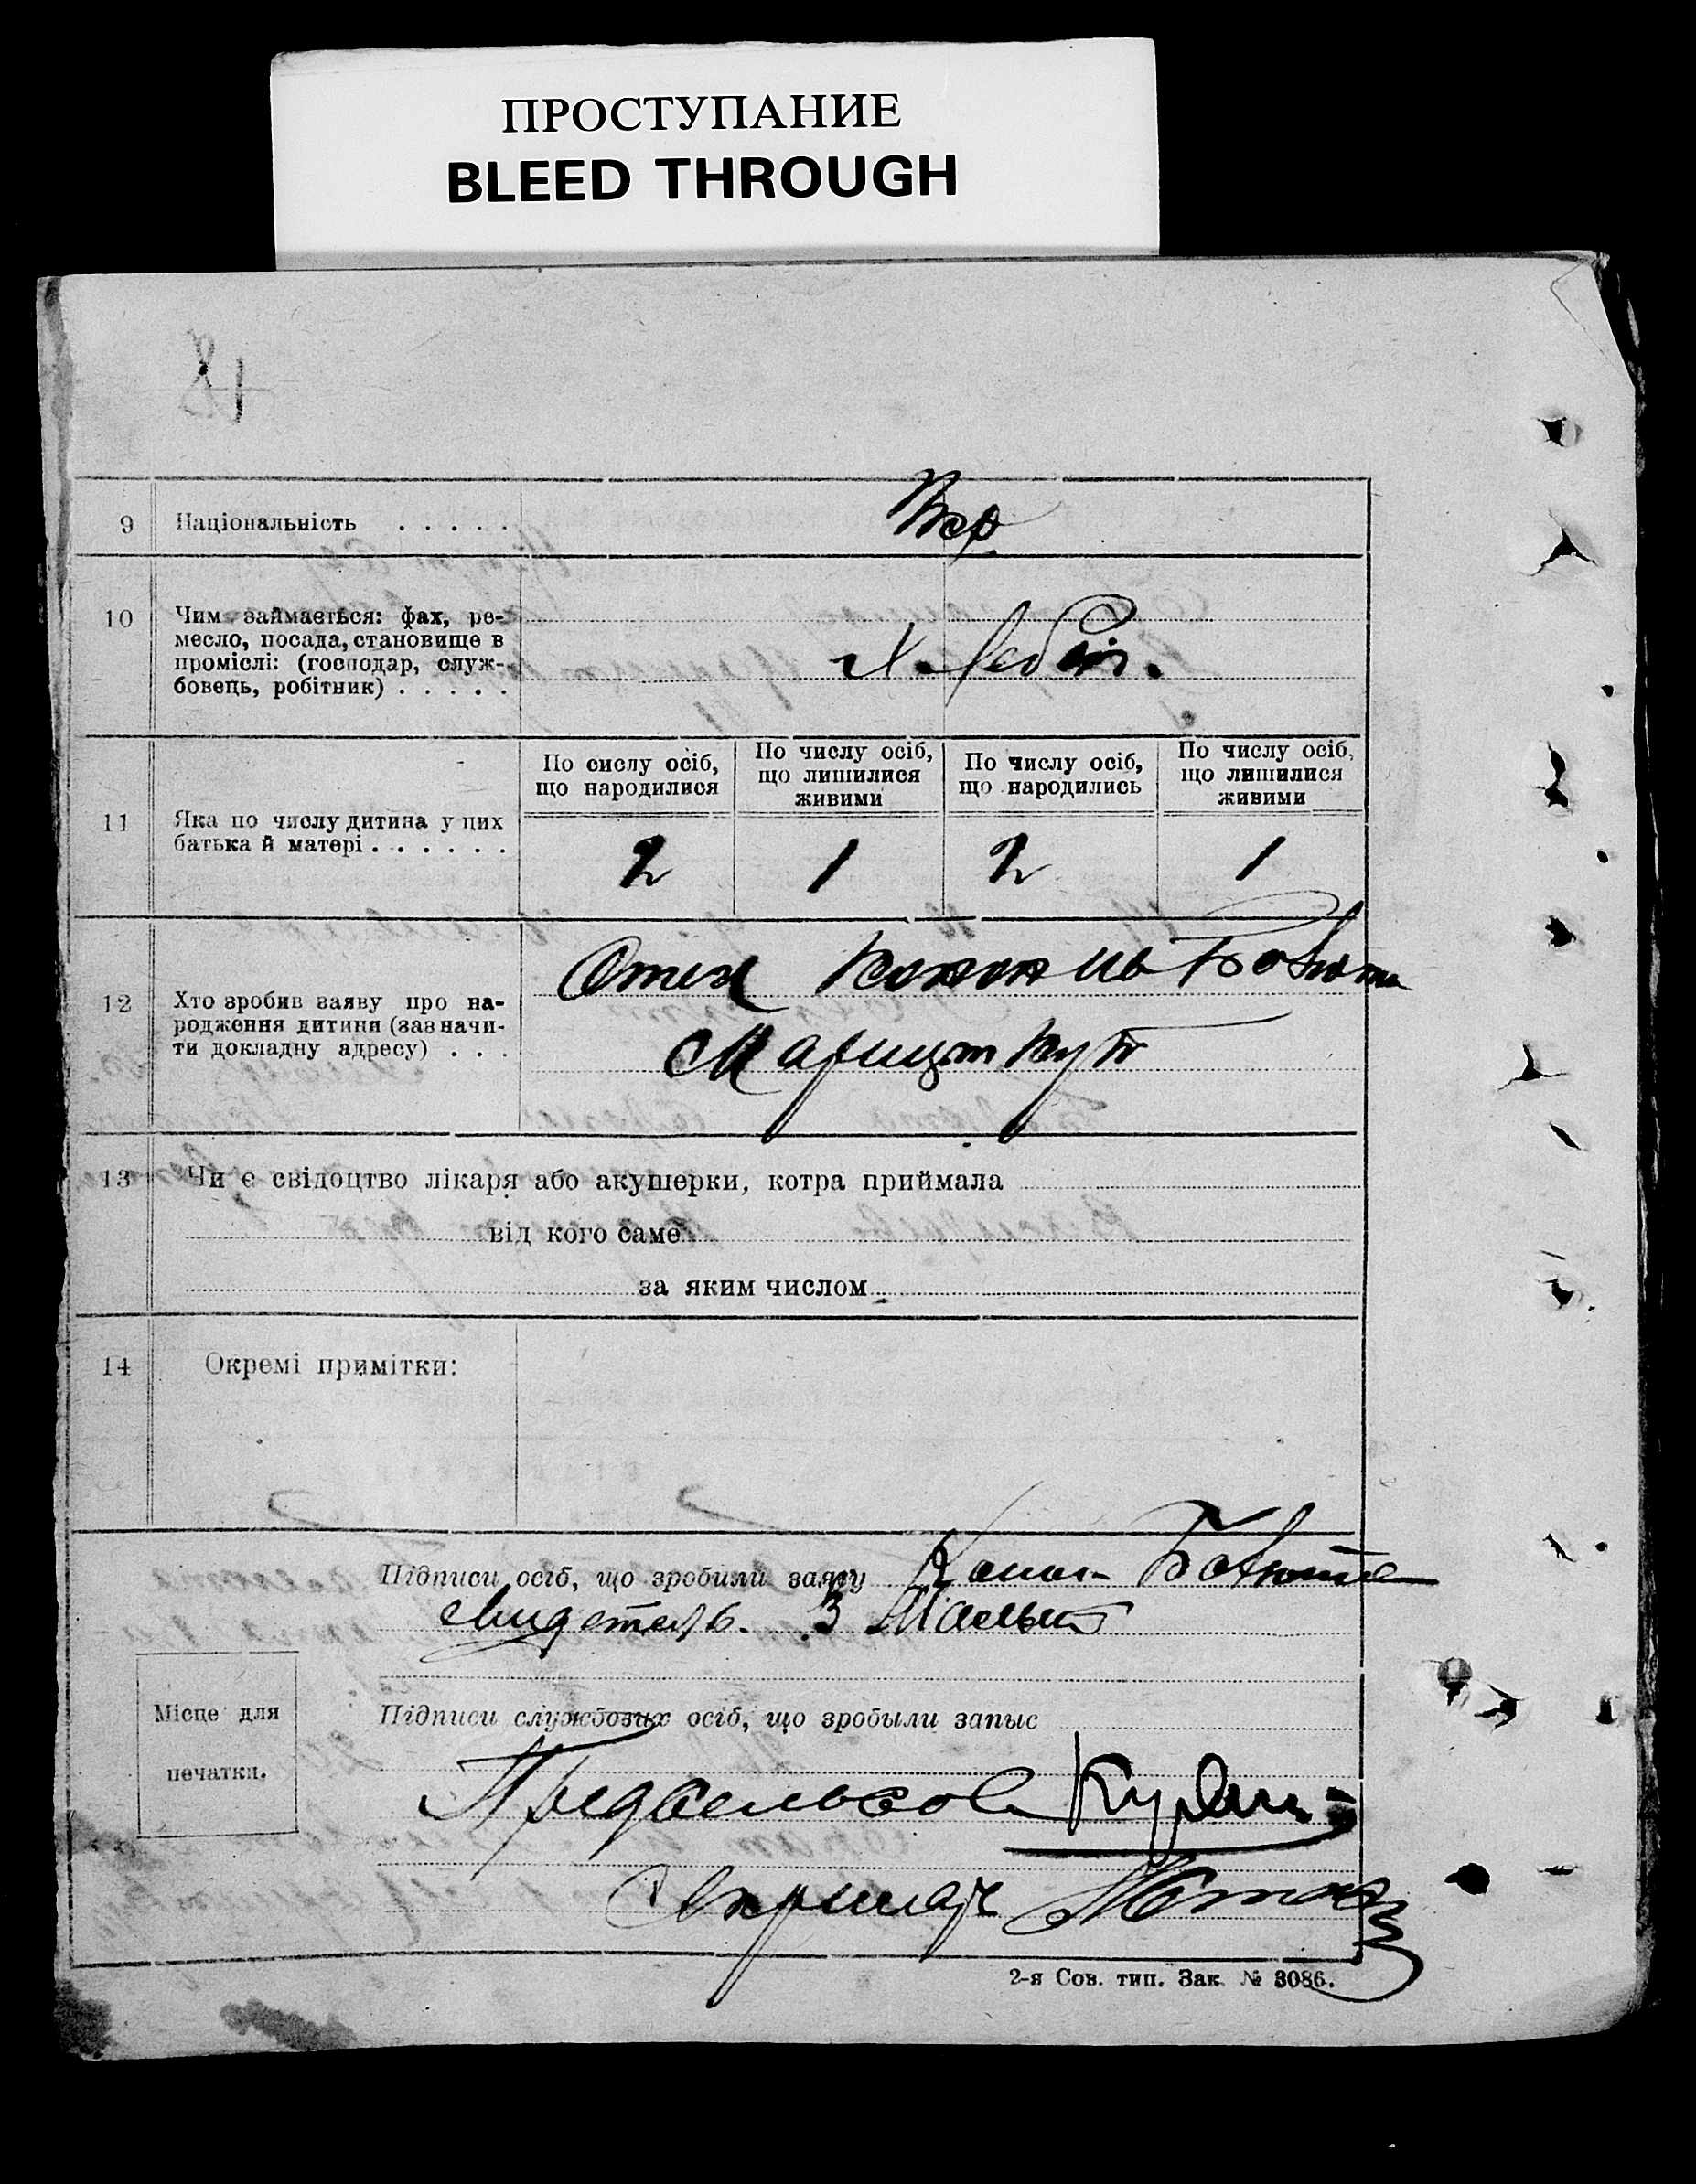 ПРОСТУПАНИЕ
BLEED THROUGH
81
9 Національність . . . . . Укр
10 Чим займається: фах, ре-
месло, посада, становище в
проміслі: (господар, служ-
бовець, робітник) . . . . . Хлебоп.
По сислу осіб, що народилися
По числу осіб, що лишилися живими
По числу осіб, що народились
По числу осіб, що лишилися живими
11 Яка по числу дитина у цих
батька й матері . . . . . . 2 1 2 1
12 Хто зробив заяву про на-
родження дитини (зазначи-
ти докладну адресу) . . .
Отец Конон Бовкота
13 Чи є свідоцтво лікаря або акушерки, котра приймала
від кого саме
за яким числом
14 Окремі примітки:
Підписи осіб, що зробили заяву Конон
свидетель. З
Місце для
печатки.
Підписи службозих осіб, що зробыли запыс
Предсельсов
Секретарь
2-я Сов. тип. Зак. № 3086.